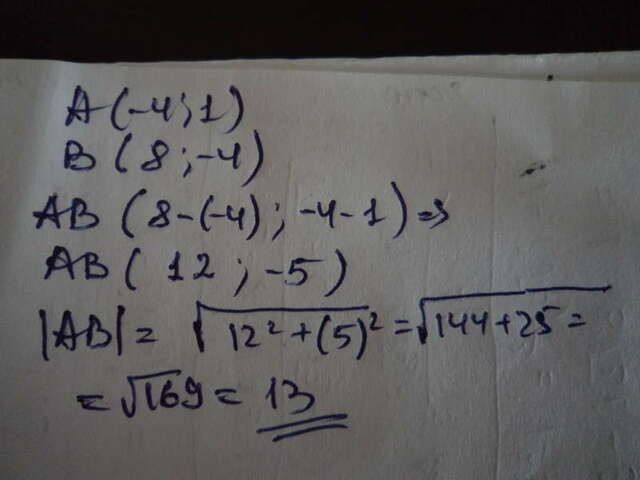 A(-4;1)
B(8;-4)
AB(8-(-4);-4-1)⇒
AB(12;-5)
|AB|=√12²+(5)²=√144+25=
=√169=13